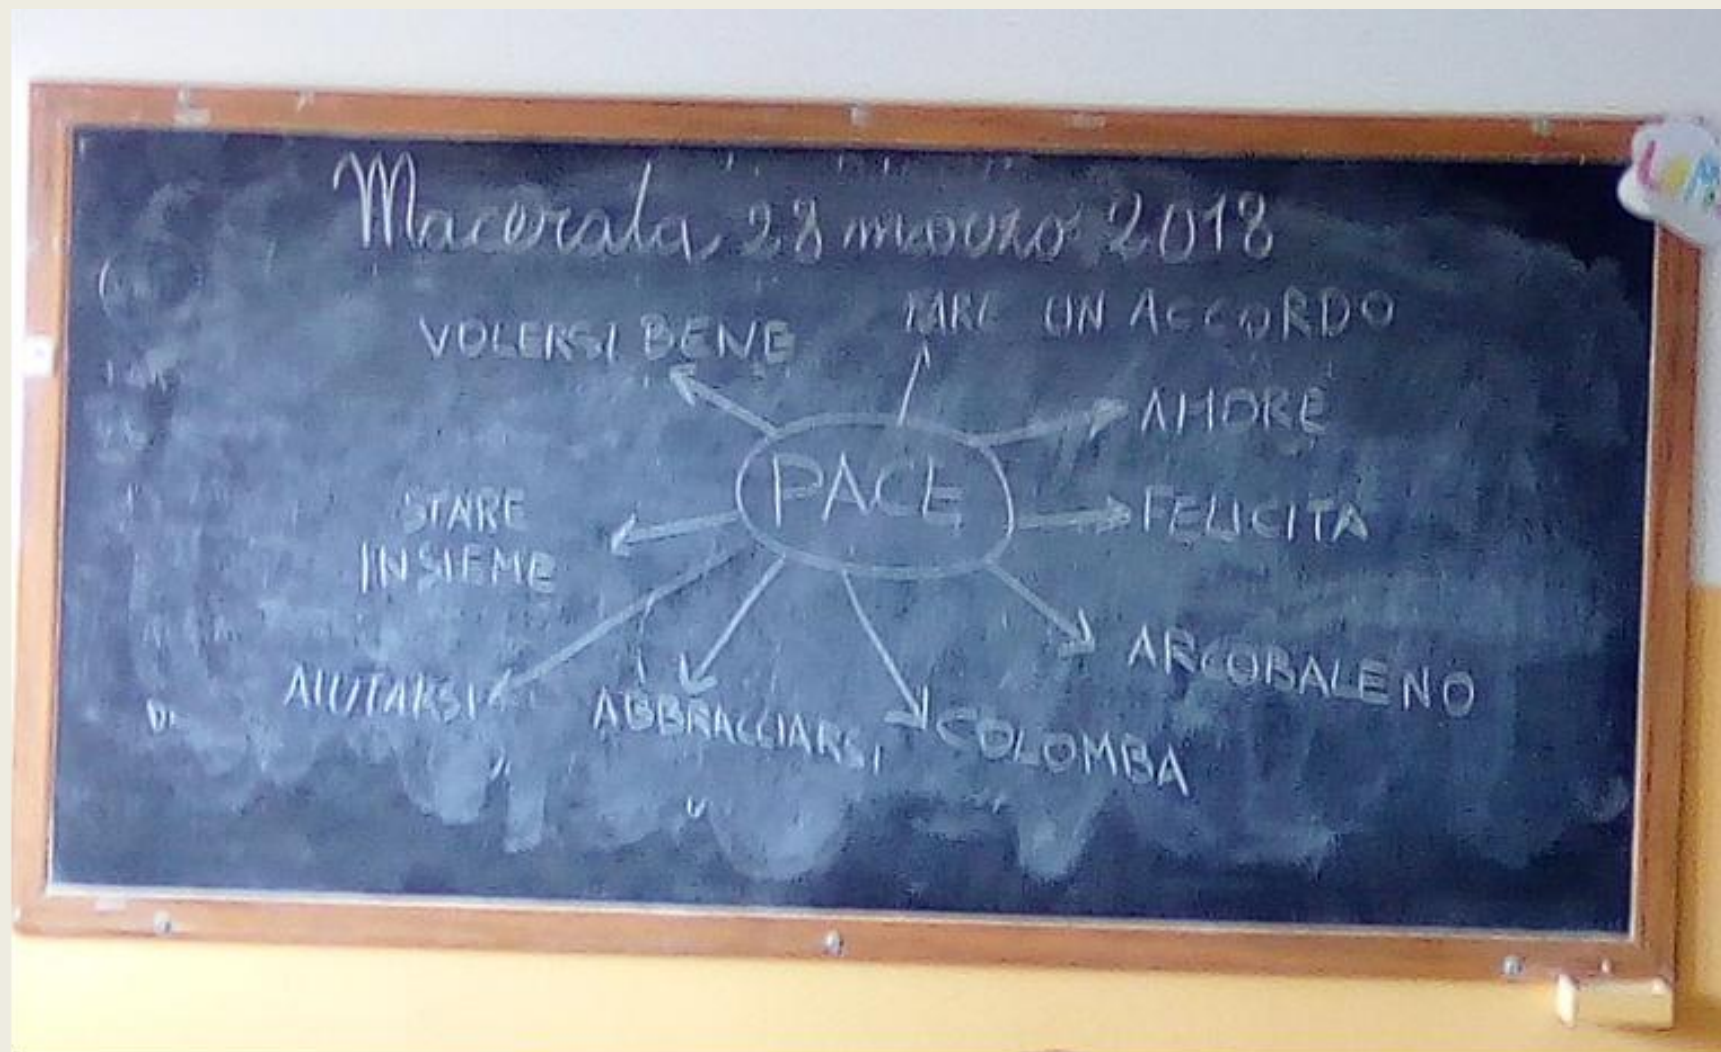 Macerata, 28 marzo 2018
VOLERSI BENE
FARE UN ACCORDO
AMORE
PACE
FELICITÀ
STARE
INSIEME
ARCOBALENO
AIUTARSI
ABBRACCIARSI
COLOMBA